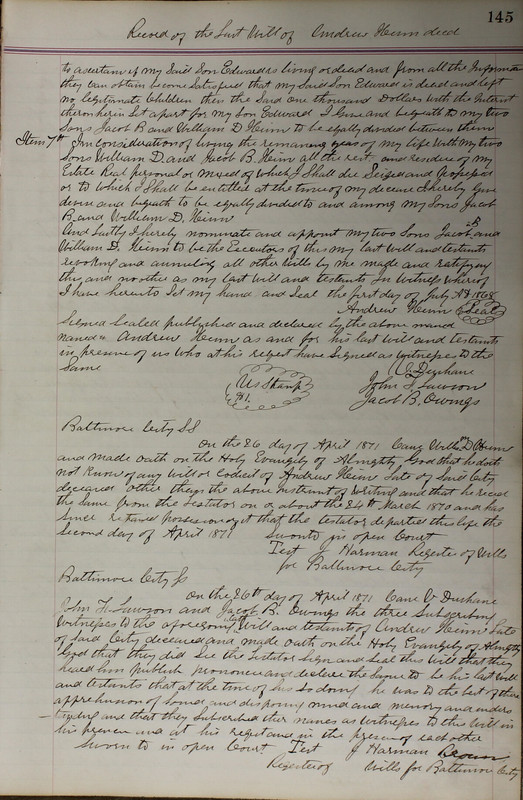 145
Record of the Last Will of Andrew Heim decd
to ascertain if my Said Son Edward is living or dead and from all the Information
they can obtain become Satisfied that my Said Son Edward is dead and left
no legitimate Children then the Said One thousand Dollars with the Interest
thereon herein Set apart for my Son Edward I Give and bequeath to my two
Sons Jacob B and William D Heim to be equally divided between them
Item 7th In Consideration of living the remaining years of my life With my two
Sons William D. and Jacob B. Heim all the rest and residue of my
Estate Real personal or mixed of which I Shall die Seized and possessed
or to which I Shall be entitled at the time of my decease I hereby Give
devise and bequeath to be equally divided to and among my Sons Jacob
B. and William D. Heim
And lastly I hereby nominate and appoint my two Sons Jacob B. and
William D. Heim to be the Executors of this my last will and testament
revoking and annulling all other Wills by me made and ratifying
this and no other as my last Will and testament In Witness whereof
I have hereunto Set my hand and Seal the first day of July AD 1868
Andrew Heim Seal
Signed Sealed published and declared by the above named
Andrew Heim as and for his last will and testament
in presence of us who at his request have Signed as witnesses to the
Same
V. Dushane
US Stamp
$1.
John F. Lawson
Jacob B. Owings
Baltimore City SS
On the 26 day of April 1871 Came William D Heim
and made oath on the Holy Evangely of Almighty God that he doth
not Know of any Will or Codicil of Andrew Heim Late of Said City
deceased other than the above instrument of Writing and that he recd
the Same from the testator on or about the 24th March 1870 and has
Since retained possession of it that the testator departed this life the
Second day of April 1871
Sworn to in open Court
Test J Harman Register of Wills
for Baltimore City
Baltimore City SS
On the 26th day of April 1871 Came V Dushane
John F. Lawson and Jacob B. Owings the three Subscribing
Witnesses to the aforegoing last Will and testament of Andrew Heim Late
of Said City deceased and made oath on the Holy Evangely of Almighty
God that they did See the testator Sign and Seal this Will that they
heard him publish pronounce and declare the Same to be his last Will
and testament that at the time of his So doing he was to the best of their
apprehension of Sound and disposing mind and memory and under
standing and that they Subscribed their names as Witnesses to this Will in
his presence and at his request and in the presence of each other
Sworn to in open Court Test J Harman Brown
Register of Wills for Baltimore City